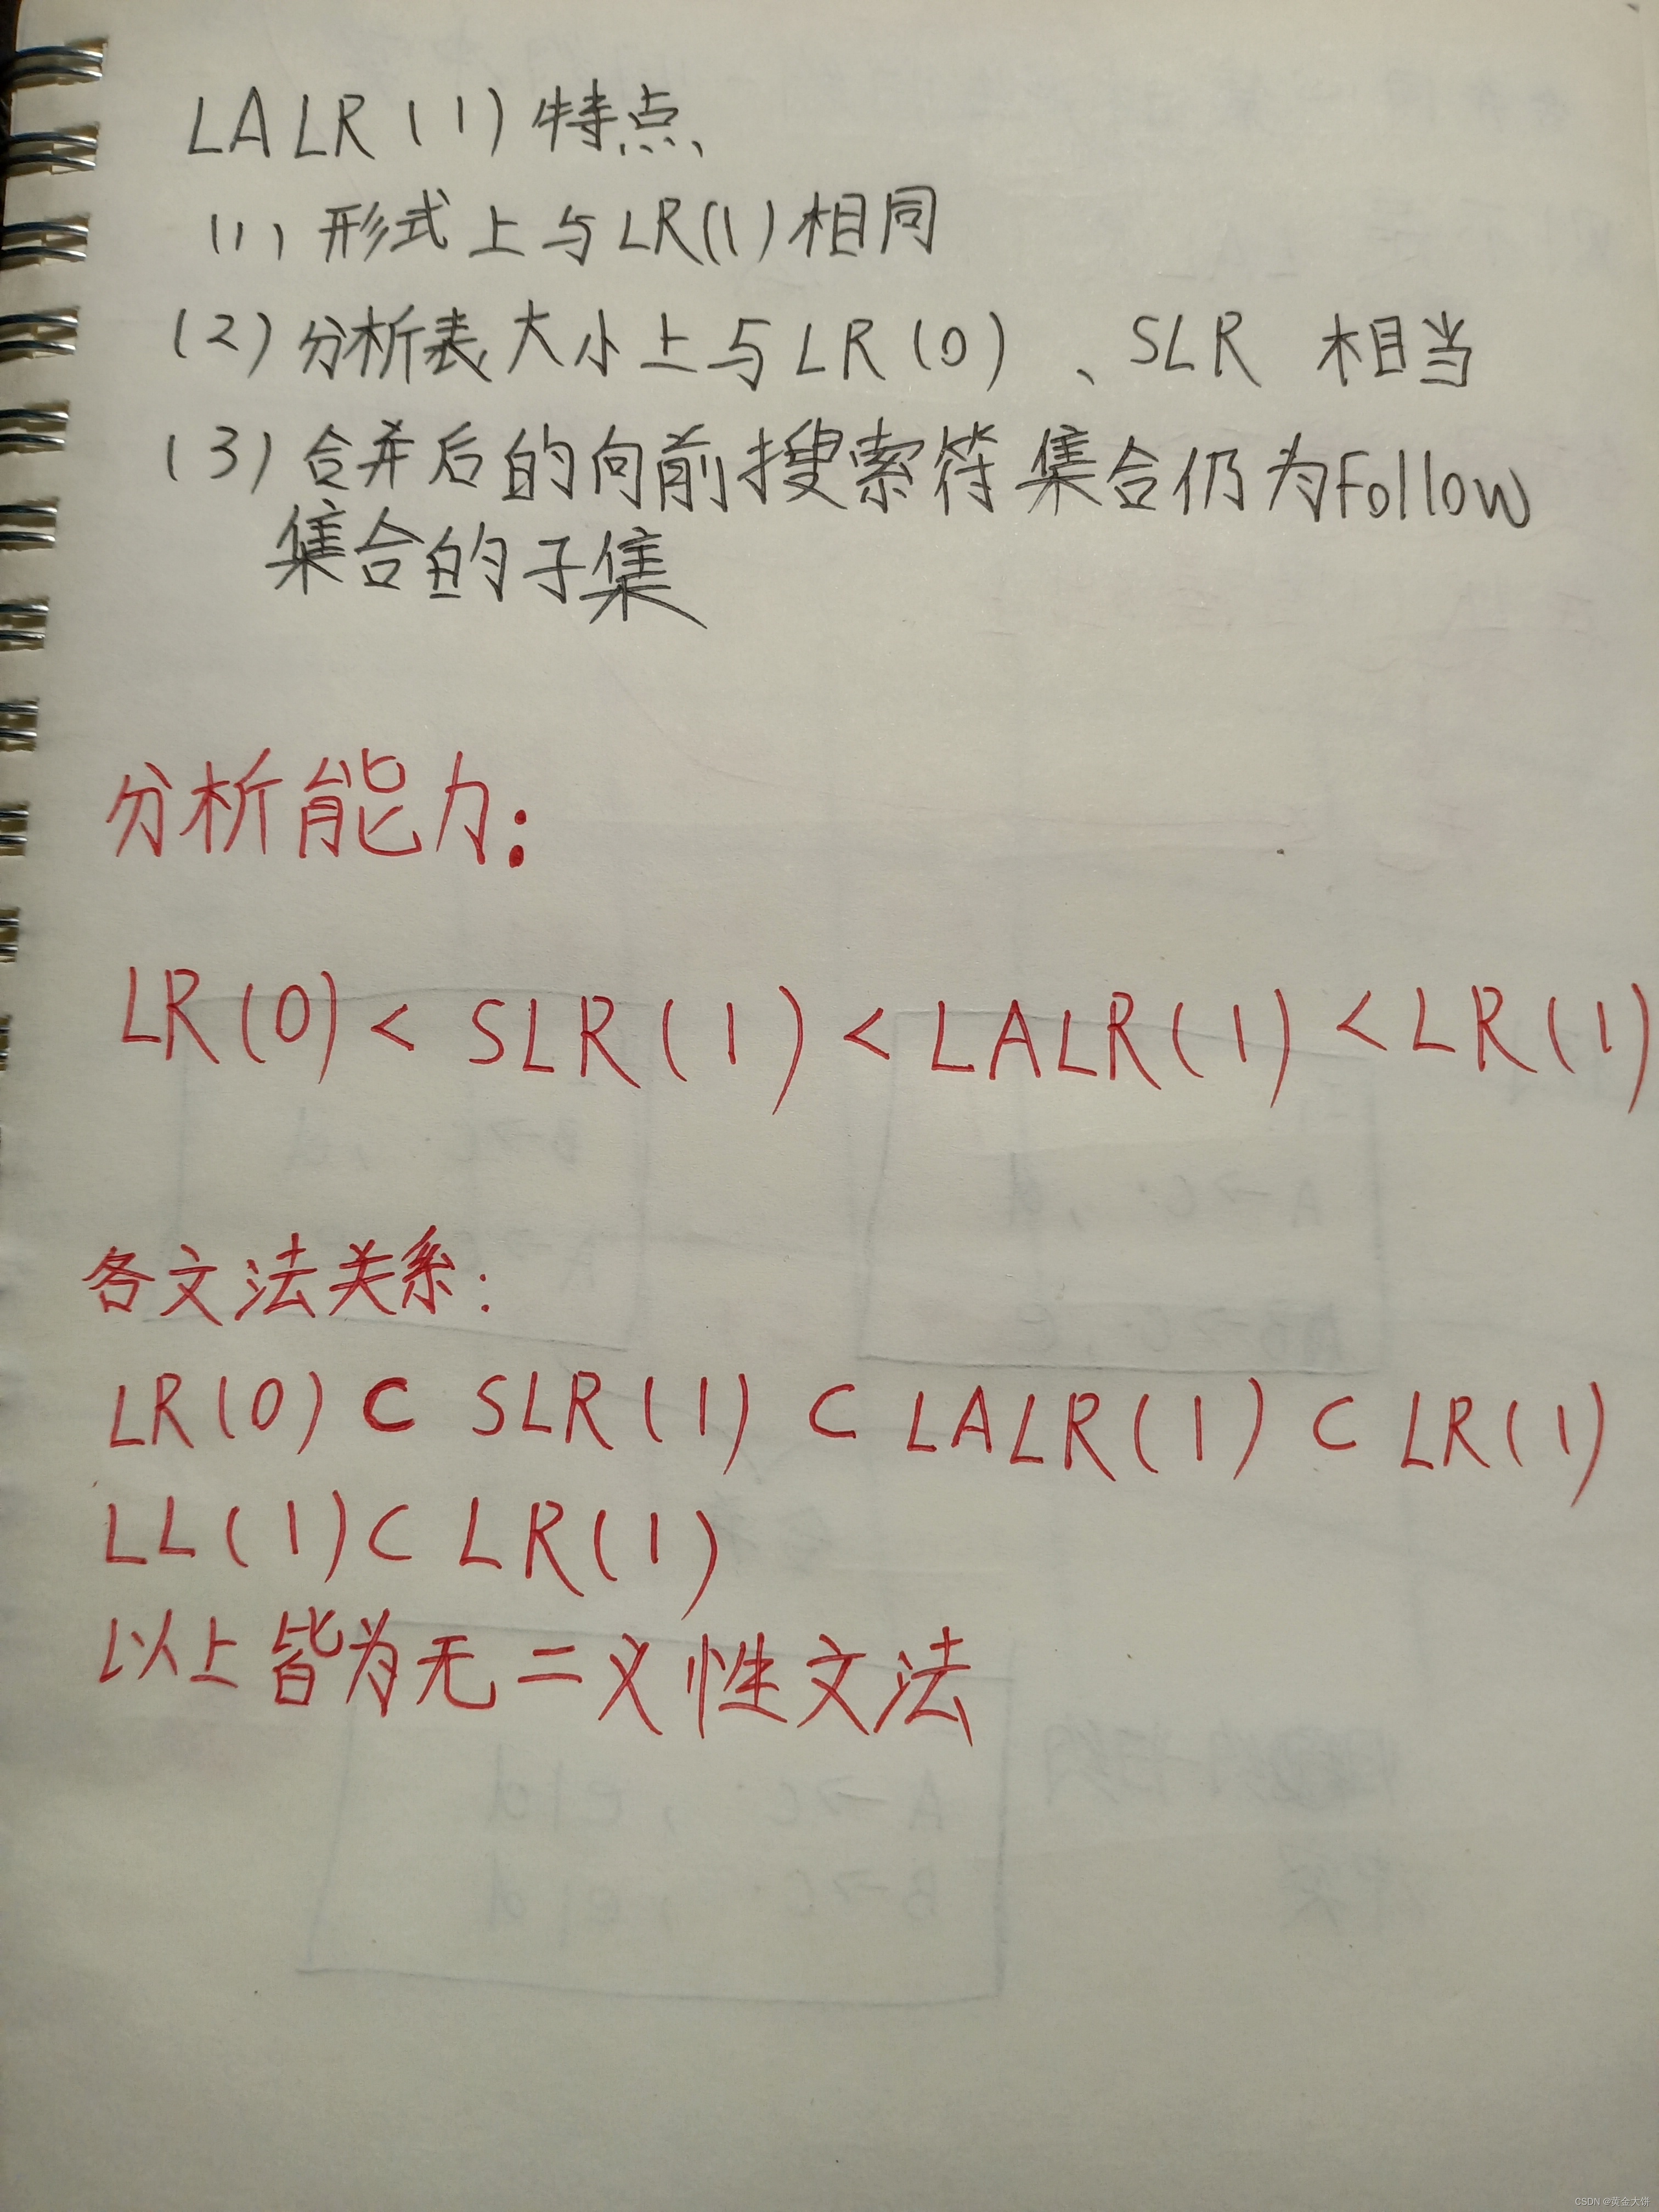 LALR(1)特点
(1) 形式上与LR(1)相同
(2) 分析表大小上与LR(0)、SLR 相当
(3) 合并后的向前搜索符集合仍为Follow
集合的子集
分析能力:
LR(0) < SLR(1) < LALR(1) < LR(1)
各文法关系:
LR(0) ⊂ SLR(1) ⊂ LALR(1) ⊂ LR(1)
LL(1) ⊂ LR(1)
以上皆为无二义性文法
CSDN @黄金大饼